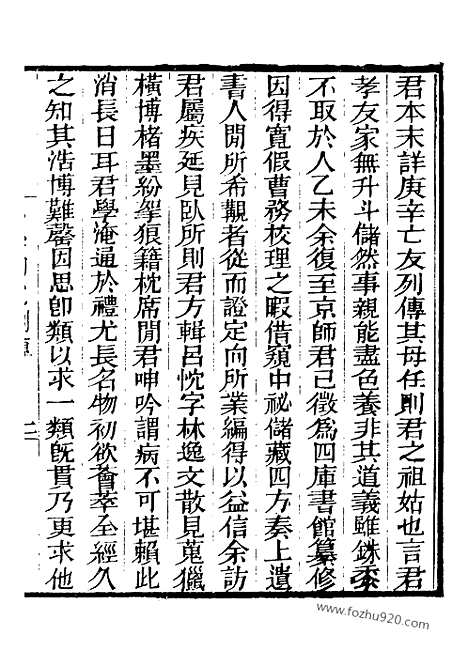 君本末詳庚辛亡友列傳其母任則君之祖姑也言君
孝友家無升斗儲然事親能盡色養非其道義雖銖黍
不取於人乙未余復至京師君已徵爲四庫書館纂修
因得寬假曹務校理之暇借窺中祕儲藏四方奏上遺
書人閒所希覯者從而證定向所業編得以益信余訪
君屬疾延見臥所則君方輯呂忱字林逸文散見蒐獵
橫博楮墨紛挐狼籍枕席閒君呻吟謂病不可堪賴此
消長日耳君學淹通於禮尤長名物初欲薈萃全經久
之知其浩博難罄因思卽類以求一類旣貫乃更求他
www.fozhu920.com